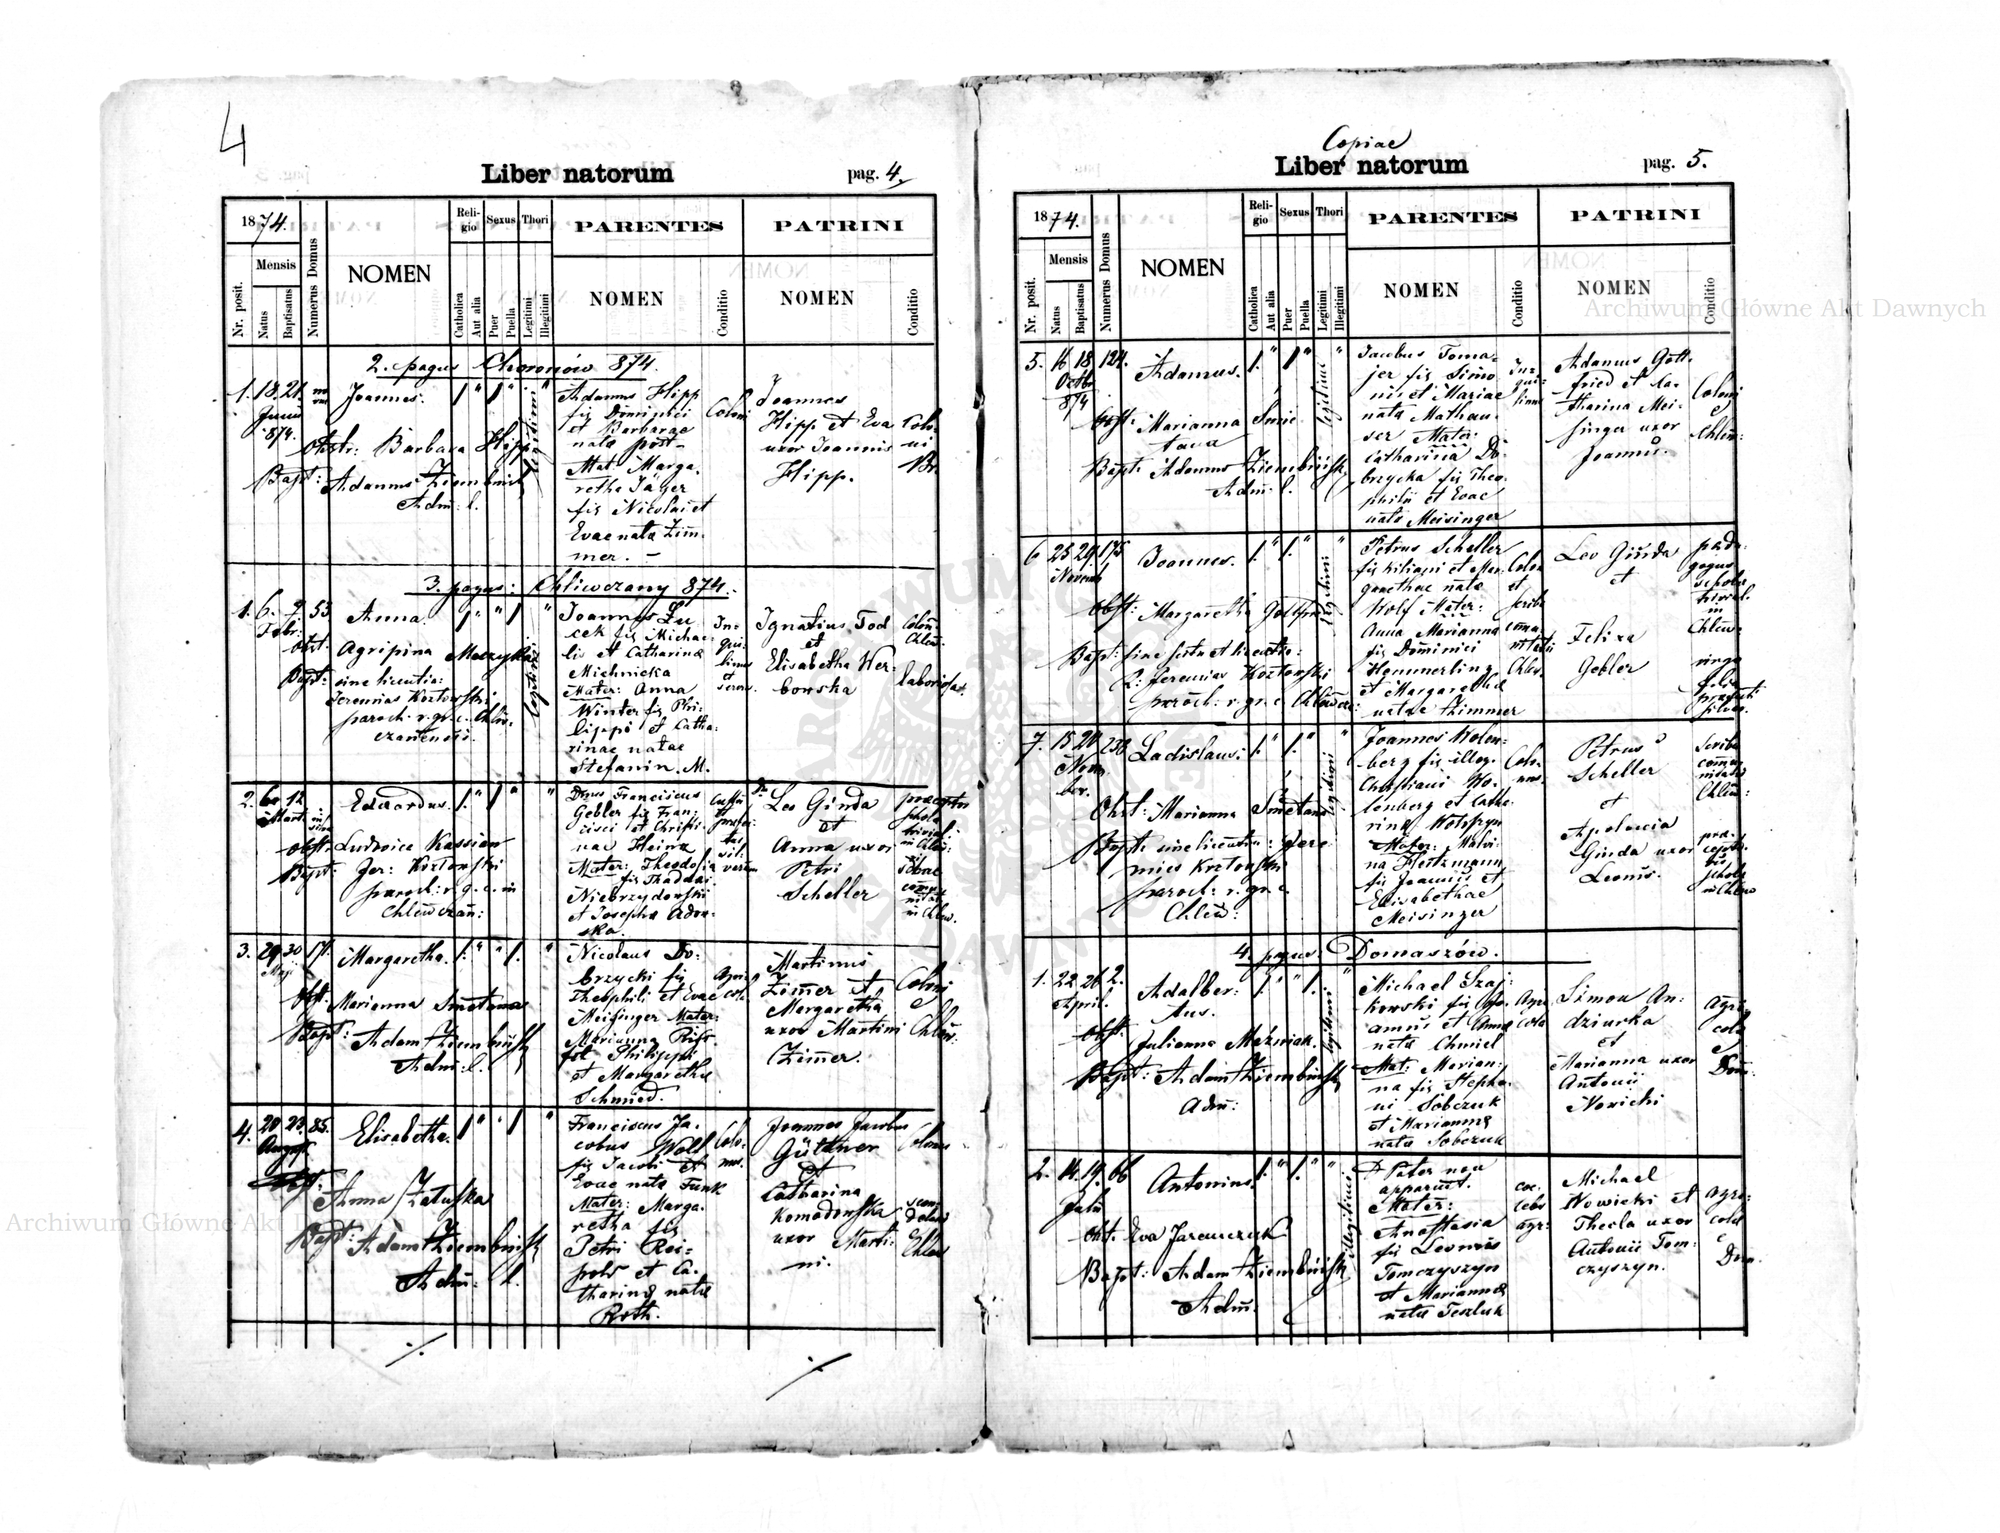 4
Liber natorum
pag. 4.
1874.
Nr. posit.
Mensis
Natus
Baptisatus
Numerus Domus
NOMEN
Reli-
gio
Catholica
Aut alia
Sexus
Puer
Puella
Thori
Legitimi
Illegitimi
PARENTES
NOMEN
Conditio
PATRINI
NOMEN
Conditio
2. pagus Choronów 874.
1. 18. 21.
Junii
874.
Joannes.
Obstr: Barbara Hipp
Bapt: Adamus Ziembiński
Adm: l.
legitimi
Adamus Hipp
fis Dominici
et Barbarae
nata post-
Mat: Marga.
retha Jäger
fis Nicolai et
Evae nata Zim-
mer. –
Coloni
Joannes
Hipp et Eva
uxor Joannis
Hipp.
Colo-
ni
Br.
3. pagus: Chliwczany 874.
1. 6. 9 53
Febr:
Anna
obst. Agripina Muzyka
Bapt: sine licentia:
Jeremias Kozłowski
paroch. r. gr. c. Chliw-
czanensis.
legitimi
Joannes Lu
cek fis Michae-
lis et Catharina
Michnicka
Mater: Anna
Winter fis Phi-
lippi et Catha-
rinae natae
Stefanin. M.
In-
qui-
linus
et
Ignatius Tod
et
Elisabetha Wer-
bowska
Colon:
Chliw:
laboriosa.
2. 6. 12
Mart.
Edwardus.
obstr. Ludovica Kassian
Bapt: Jer: Kozłowski
paroch: r. g. c. in
Chliwczan:
Dnus Franciscus
Gebler fis Fran-
cisci et Christi-
nae Heinz
Mater: Theodosia
fis Thaddaei
Niebrzydowski
et Josepha Adam-
ska.
Leo Ginda
et
Anna uxor
Petri
Scheller
3. 29 30 17.
Maji
Margaretha.
Obst. Marianna Smetana
Bapt: Adam Ziembiński
Adm: l.
Nicolaus Do-
brzycki fis
Theophili et Evae
Meisinger Mater:
Marianna
fis Philippi
et Margaretha
Schmied.
Agri-
cola
Martinus
Zimer et
Margaretha
uxor Martini
Zimer.
Coloni
Chliw.
4. 20 23. 85.
August.
Elisabetha.
obst:
Anna Załuska
Bapt: Adam Ziembiński
Adm: l.
Franciscus Ja-
cobus Woll
fis Jacobi et
Evae nata Funk
Mater: Marga-
retha fis
Petri Rei-
pold et Ca-
tharina nata
Roth.
Colo-
nus.
Joannes Jacobus
Güttner
et
Catharina
Komodowska
uxor Marti-
ni.
Colonus
Chliw
Copiae
Liber natorum
pag. 5.
1874.
Nr. posit.
Mensis
Natus
Baptisatus
Numerus Domus
NOMEN
Reli-
gio
Catholica
Aut alia
Sexus
Puer
Puella
Thori
Legitimi
Illegitimi
PARENTES
NOMEN
Conditio
PATRINI
NOMEN
Conditio
5. 16 18 124.
Octbr
874
Adamus.
Obst: Marianna Smie
tana
Bapt: Adamus Ziembiński
Adm: l.
legitimi
Jacobus Toma-
jer fis Simo
nis et Mariae
nata Mathau-
ser Mater:
Catharina Do-
brzycka fis Theo-
phili et Evae
nata Meisinger
In-
qui-
linus
Adamus Gott-
fried et Ca-
tharina Mei-
singer uxor
Joannis.
Coloni
Chliw:
6 25 29. 175
Novemb
Joannes.
Obst: Margaretha
Bapt: sine festo et licentia:
R: Jeremias Kozłowski
paroch: r. gr. c Chliwcz:
legitimi
Petrus Scheller
fis Kiliani et Mar-
garethae nata
Wolf Mater:
Anna Marianna
fis Dominici
Hemmerling
et Margaretha
natae Zimmer
Colon
et
scriba
commu
nitatis
Chliw.
Leo Ginda
et
Felixa
Gebler
pæda-
gogus
scholae
trivial.
in
Chliw:
virgo
filia
7. 15 20 238
Novem
ber.
Ladislaus.
Obst: Marianna Smetana
Bapt: sine licentia: Jere
mias Kozłowski
paroch: r. gr. c.
Chliw:
legitimi
Joannes Wolen-
berg fis illeg.
Christiani Wo-
lenberg et Catha-
rina
Mater: Malvi-
na Hertzmann
fis Joannis et
Elisabethae
Meisinger
Colo-
nus.
Petrus
Scheller
et
Apolonia
Ginda uxor
Leonis.
Scriba
commu
nitatis
Chliw:
4. pagus: Domaszów.
1. 22 26 2.
April.
Adalber-
tus.
Obst.
Julianna Mażniak.
Bapt: Adam Ziembiński
Adm:
legitimi
Michael Szaj-
kowski fis Jo-
annis et Anna
nata Chmiel
Mat: Marian-
na fis Stepha-
ni Sobczuk
et Marianna
nata Sobczuk
Agri
cola
Simon An-
dziurka
et
Marianna uxor
Antonii
Nowicki
agri
cola
Dom:
2. 14. 19. 66
Julii
Antonius.
Obst. Eva Jaremczuk
Bapt: Adam Ziembiński
Adm:
illegitimus
Pater non
apparuit.
Mater:
Anastasia
fis Leonis
Tomczyszyn
et Marianna
nata Teszluk
coe-
lebs
agr:
Michael
Nowicki et
Thecla uxor
Antonii Tom-
czyszyn.
agri-
colae
Dom.
Archiwum Główne Akt Dawnych
Archiwum Główne Akt Dawnych